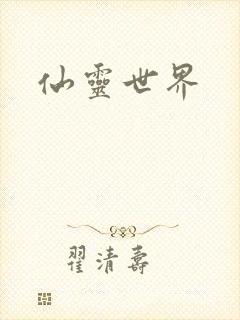 仙靈世界
翟清壽